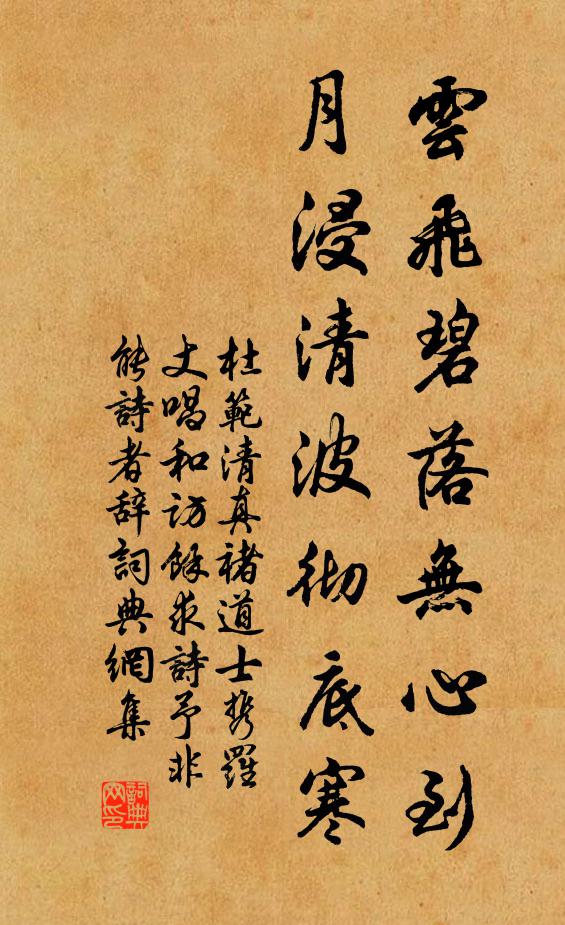 雲飛碧落無心到
月浸清波彻底寒
杜範清真褚道士携羅
丈唱和访餘求詩予非
能詩者辞詞典網集
詞典
网印